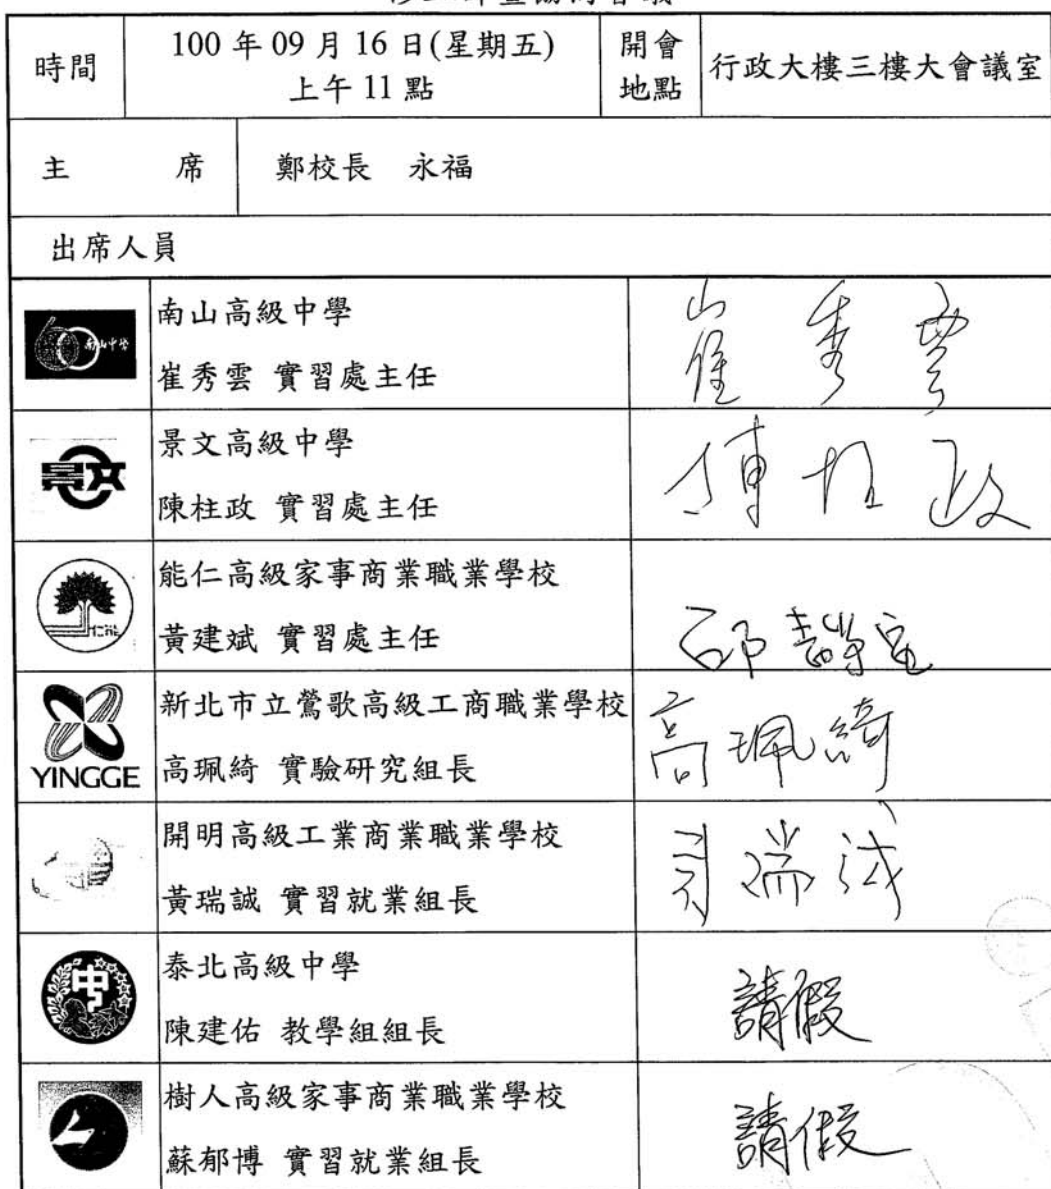 時間
100 年 09 月 16 日(星期五)
上午 11 點
開會
地點
行政大樓三樓大會議室
主 席
鄭校長 永福
出席人員
南山中學
南山高級中學
崔秀雲 實習處主任
崔秀雲
景文
景文高級中學
陳柱政 實習處主任
陳柱政
能仁高級家事商業職業學校
黃建斌 實習處主任
YINGGE
新北市立鶯歌高級工商職業學校
高珮綺 實驗研究組長
高珮綺
開明高級工業商業職業學校
黃瑞誠 實習就業組長
瑞誠
泰北高級中學
陳建佑 教學組組長
請假
樹人高級家事商業職業學校
蘇郁博 實習就業組長
請假